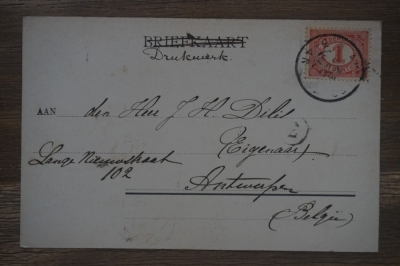 BRIEFKAART
Drukwerk.
1
AAN den Heer J. H. Delis
(Eigenaar)
Lange Nieuwstraat
102
Antwerpen
(België)